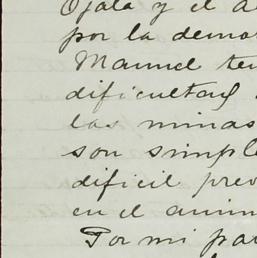 Ojala y el
por la demo
Manuel ten
dificultad
las minas
son simple
dificil prev
en el anim
Por mi par